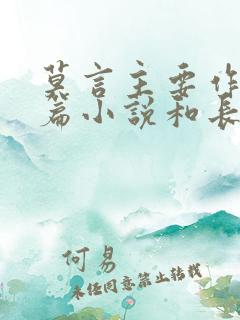 莫言主要作
篇小说和长
何易
未经同意禁止转载